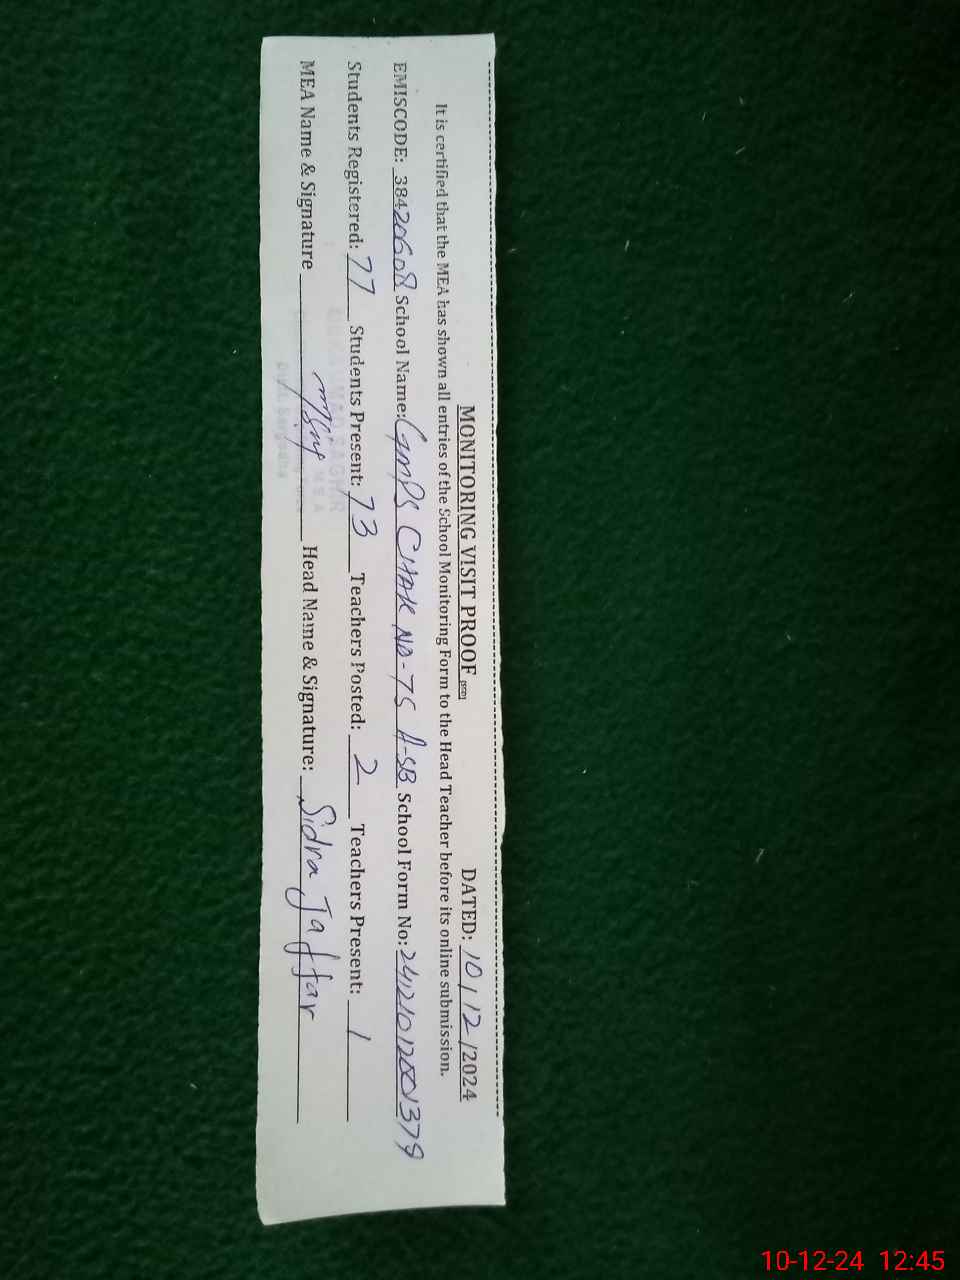 MONITORING VISIT PROOF DATED: 10/12/2024
It is certified that the MEA has shown all entries of the School Monitoring Form to the Head Teacher before its online submission.
EMISCODE: 38420608 School Name: GMPS CHAK NO-75 A-SB School Form No:
Students Registered: 77 Students Present: 73 Teachers Posted: 2 Teachers Present: 1
MEA Name & Signature Head Name & Signature: Sidra Jaffar
10-12-24 12:45